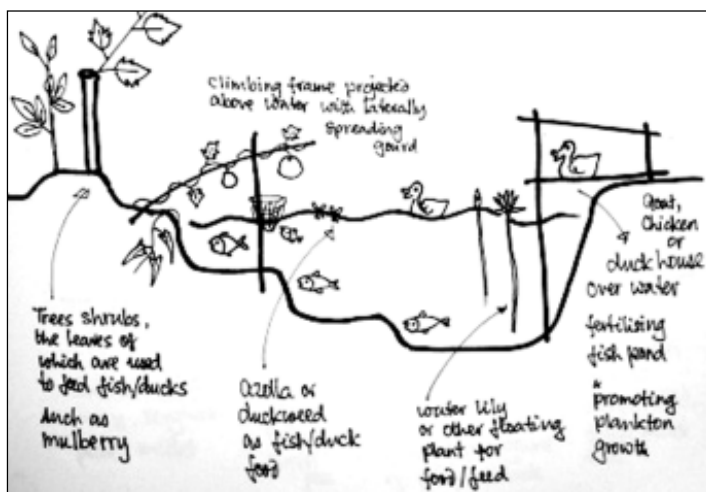 climbing frame projected
above water with laterally
spreading
gourd
Trees shrubs,
the leaves of
which are used
to feed fish/ducks
such as
mulberry
azolla or
duckweed
as fish/duck
food
water lily
or other floating
plant for
food/feed
Goat,
chicken
or
duckhouse
over water
fertilising
fish pond
&
promoting
plankton
growth